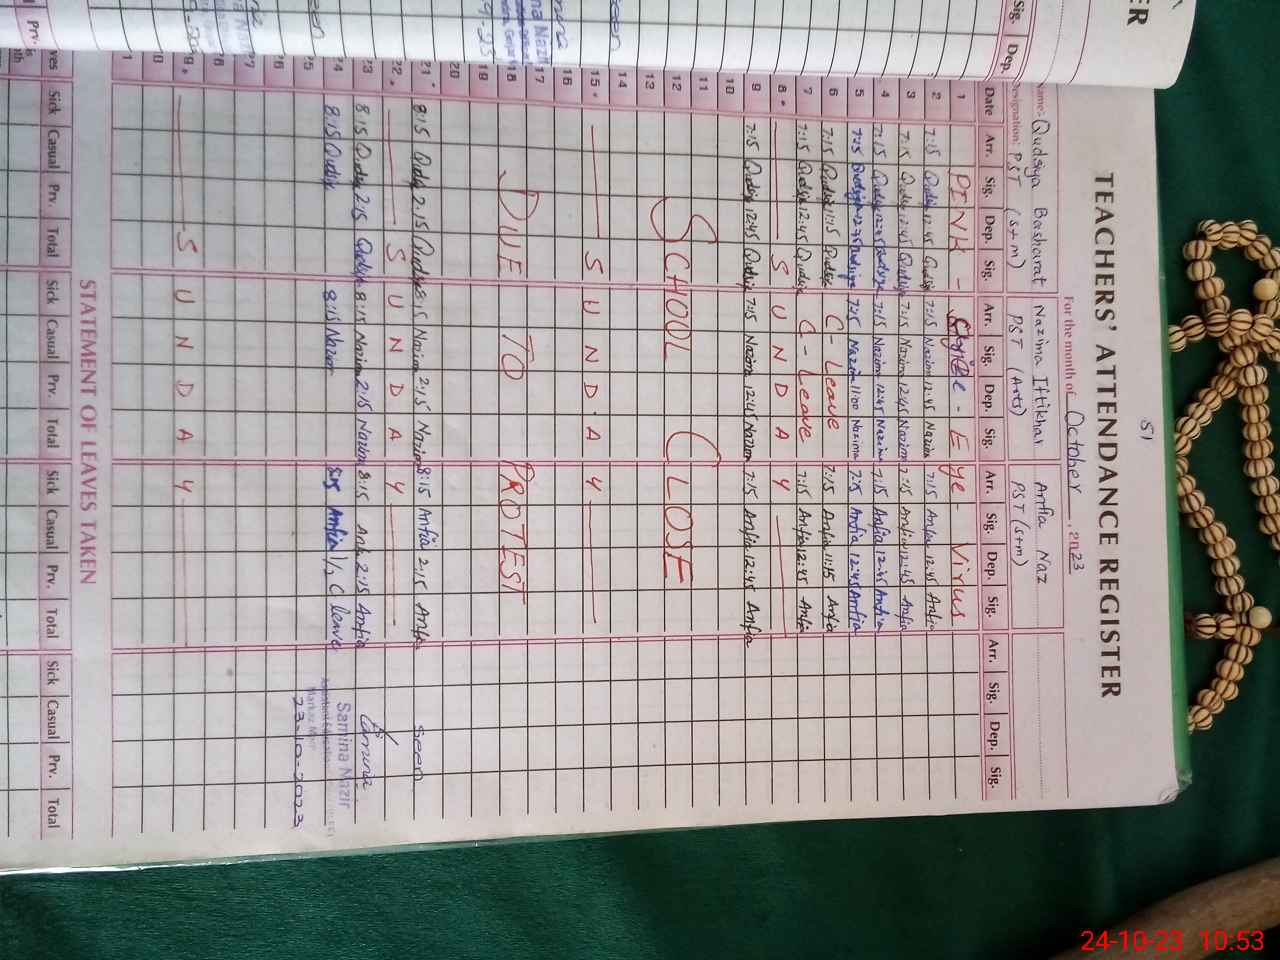 TEACHERS' ATTENDANCE REGISTER
51
For the month of October, 2023
Name:- Qudsiya Basharat Nazima Iftikhar Anfia Naz
Designation: PST (s+m) PST (Arts) PST (s+m)
Date Arr. Sig. Dep. Sig. Arr. Sig. Dep. Sig. Arr. Sig. Dep. Sig. Arr. Sig. Dep. Sig.
1 PINK - Eye - Virus
2 7:15 Qudsiya 12:45 Qudsiya 7:15 Nazima 12:45 Nazima 7:15 Anfia 12:45 Anfia
3 7:15 Qudsiya 12:45 Qudsiya 7:15 Nazima 12:45 Nazima 7:15 Anfia 12:45 Anfia
4 7:15 Qudsiya 12:45 Qudsiya 7:15 Nazima 12:45 Nazima 7:15 Anfia 12:45 Anfia
5 7:15 Qudsiya 12:45 Qudsiya 7:15 Nazima 11:00 Nazima 7:15 Anfia 12:45 Anfia
6 7:15 Qudsiya 11:15 Qudsiya C - Leave 7:15 Anfia 11:15 Anfia
7 7:15 Qudsiya 12:45 Qudsiya C - Leave 7:15 Anfia 12:45 Anfia
8 S U N D A Y
9 7:15 Qudsiya 12:45 Qudsiya 7:15 Nazima 12:45 Nazima 7:15 Anfia 12:45 Anfia
10
11
12 SCHOOL CLOSE
13
14
15 S U N D A Y
16
17
18 DUE TO PROTEST
19
20
21 8:15 Qudsiya 2:15 Qudsiya 8:15 Nazima 2:15 Nazima 8:15 Anfia 2:15 Anfia seen
22 S U N D A Y
23 8:15 Qudsiya 2:15 Qudsiya 8:15 Nazima 2:15 Nazima 8:15 Anfia 2:15 Anfia
24 8:15 Qudsiya 8:15 Nazima 8:15 Anfia 1/2 C leave
Samina Nazir
25 23-10-2023
26
27
28
29 S U N D A Y
STATEMENT OF LEAVES TAKEN
Sick Casual Prv. Total Sick Casual Prv. Total Sick Casual Prv. Total Sick Casual Prv. Total
ER
Sig. Dep.
seen
Prv.
24-10-23 10:53